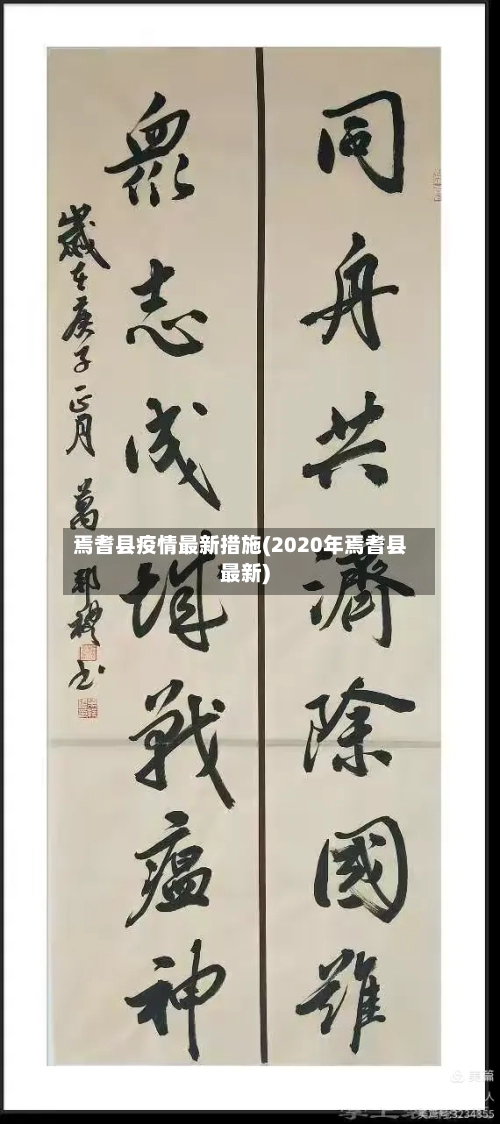 同舟共濟除國難
衆志成城戰瘟神
歲在庚子正月
萬
書
焉耆县疫情最新措施(2020年焉耆县
最新)
美篇
3234355